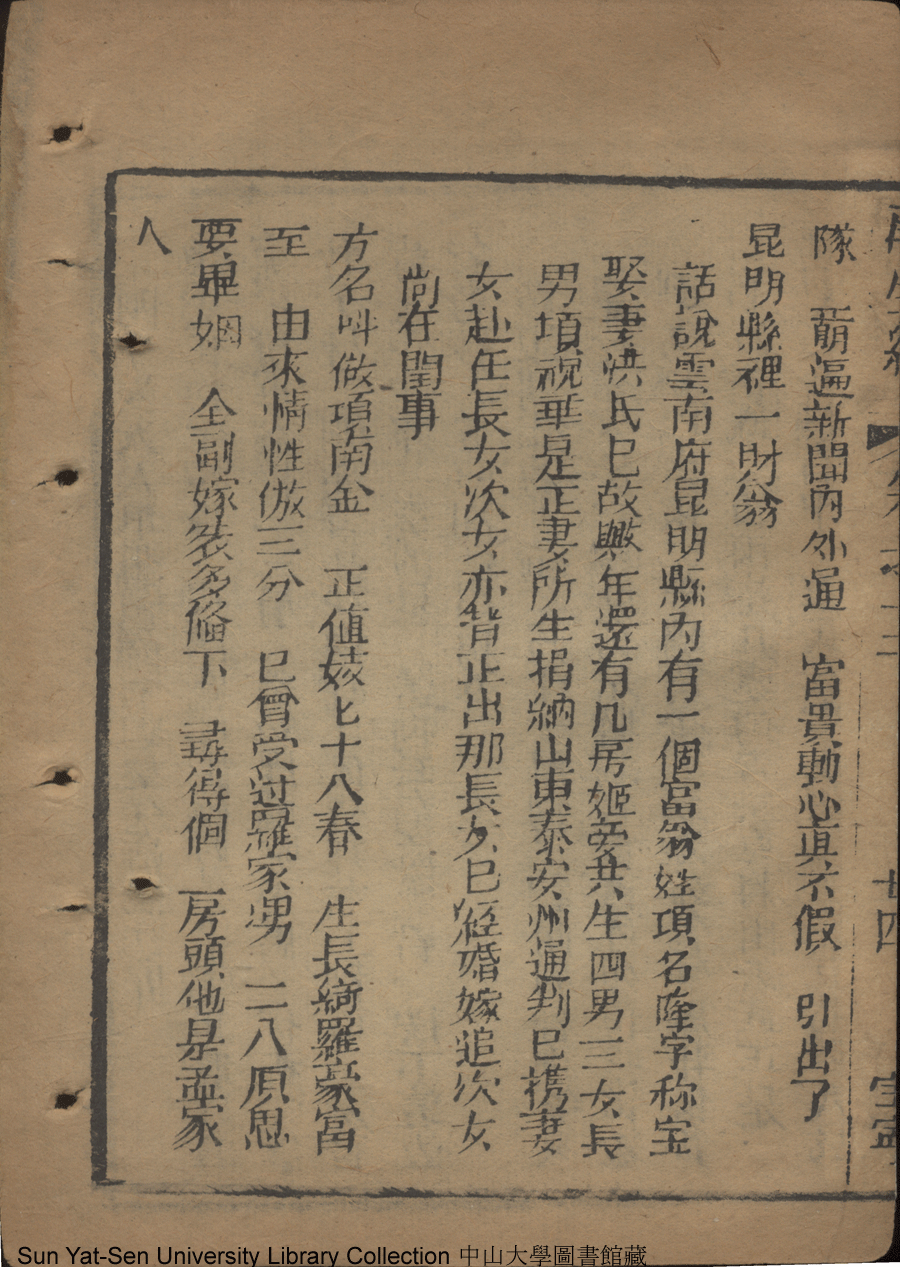 隊　萠逼新聞內外通　富貴動心眞不假　引出了
昆明縣裡一財翁
話說雲南府昆明縣內有一個富翁姓項名隆字称宝
娶妻洪氏已故數年還有几房姬妾共生四男三女長
男項視華是正妻所生捐納山東泰安州通判已携妻
女赴任長女次女亦皆正出那長女已経婚嫁追次女
尚在閨事
方名叫做項南金　正值姣匕十八春　生長綺羅豪富
至　由來情性倣三分　已曾受过羅家男　二八原思
要畢姻　全副嫁裝多俻下　尋得個一房頭他是孟家
人
廿四
Sun Yat-Sen University Library Collection 中山大學圖書館藏